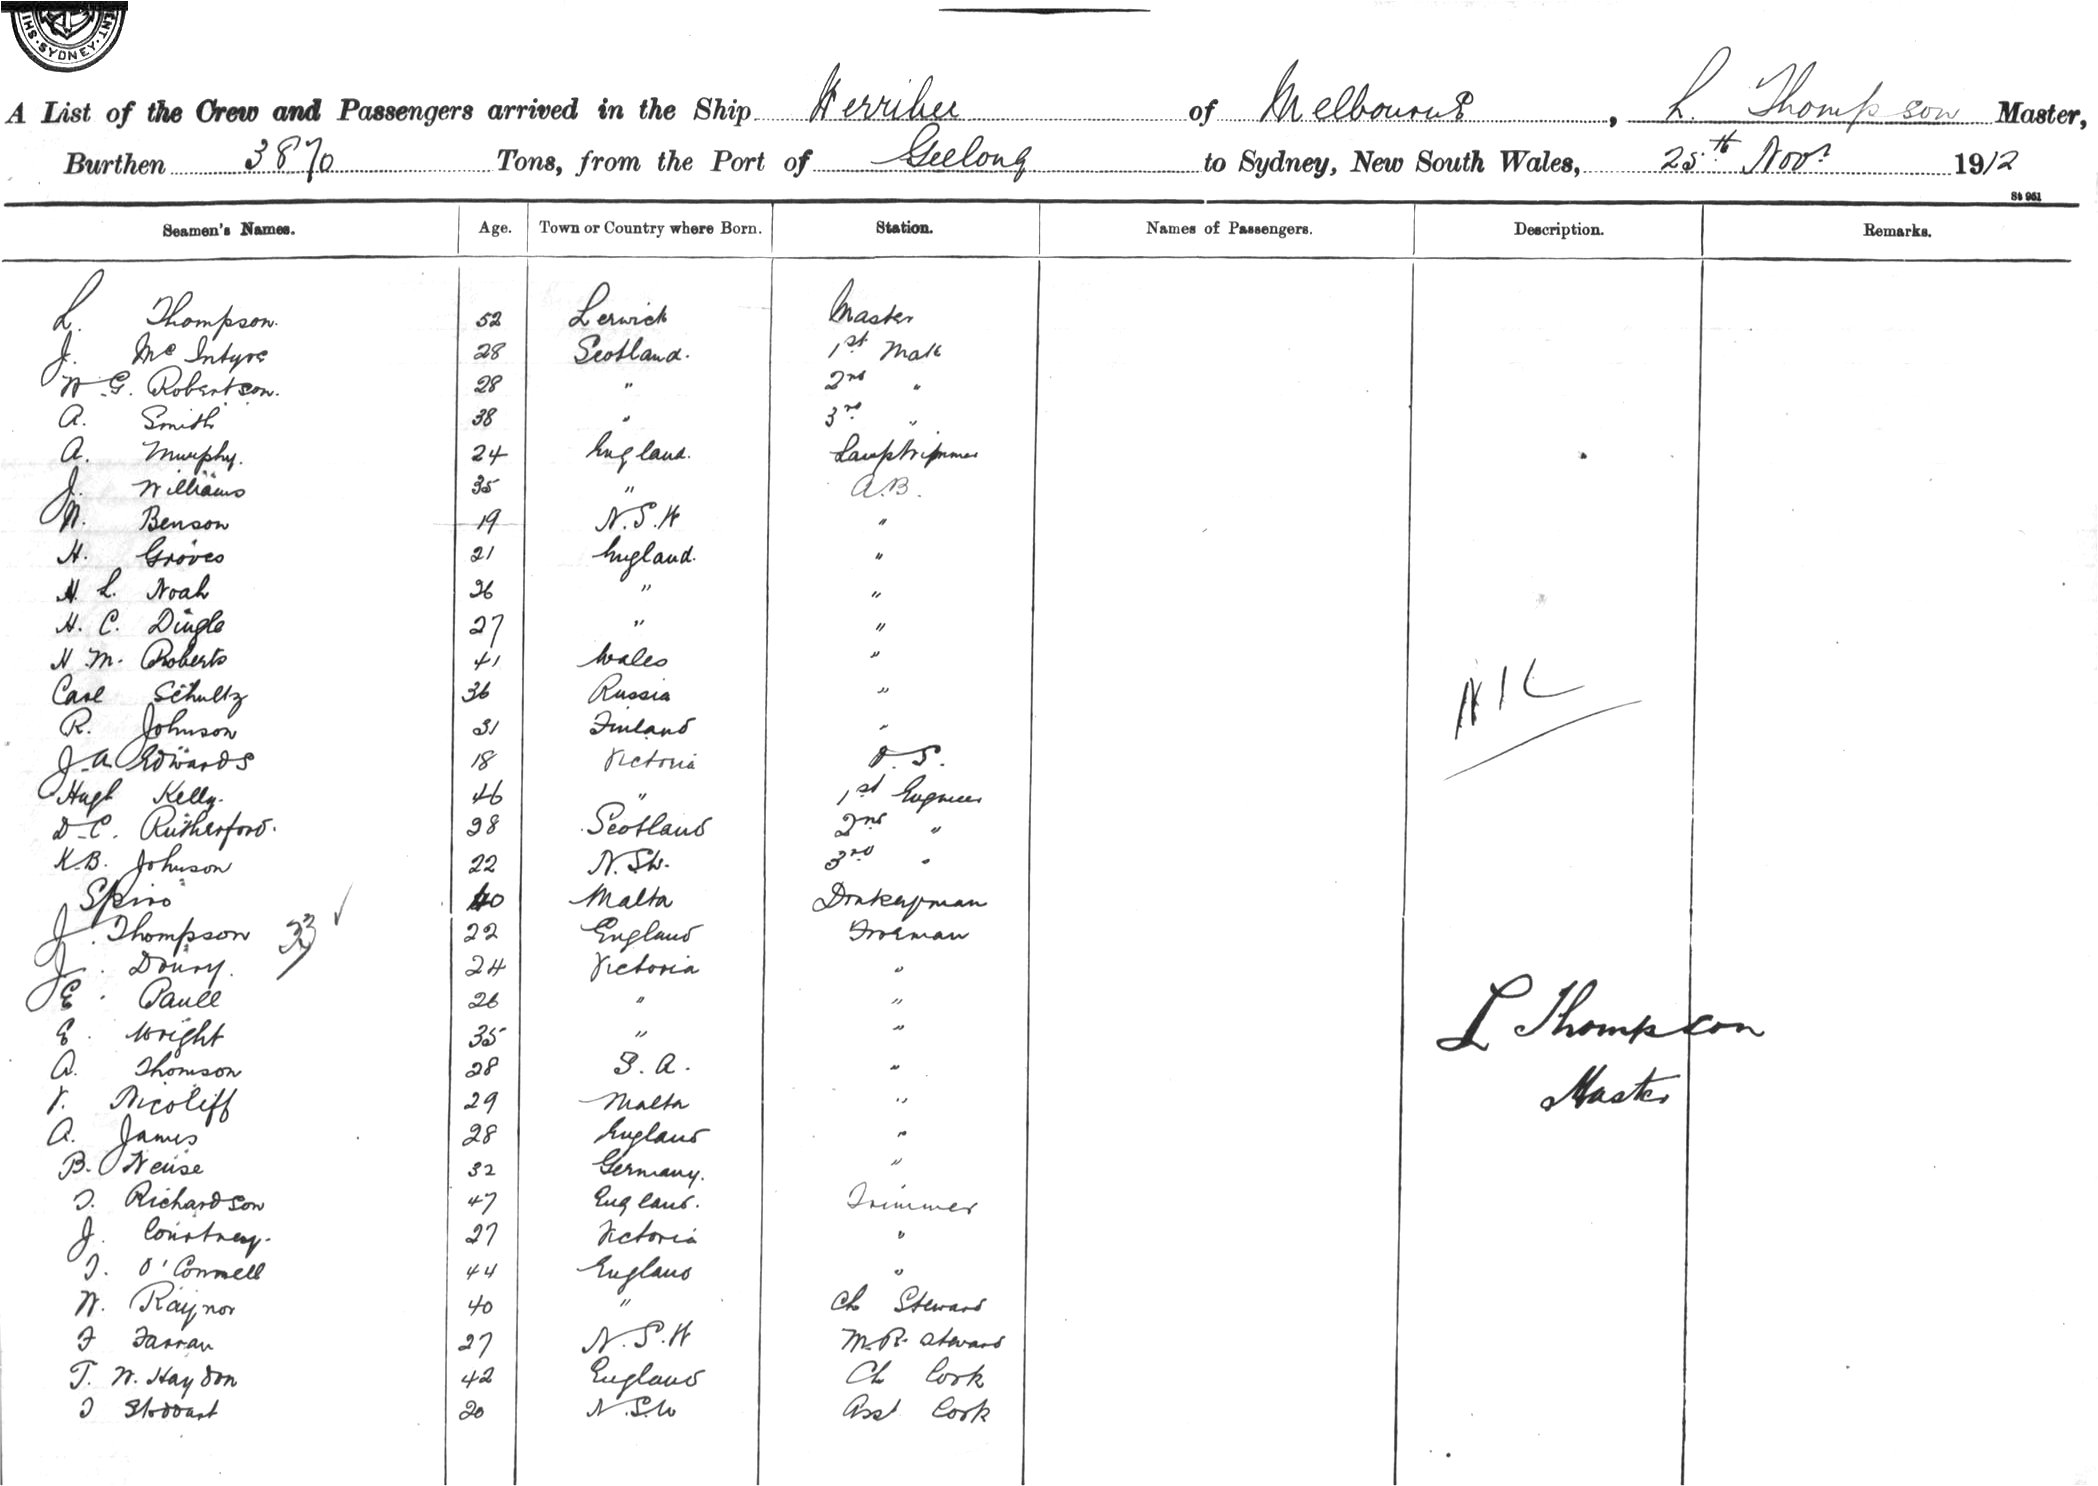 SYDNEY
A List of the Crew and Passengers arrived in the Ship Werribee of Melbourne, L. Thompson Master,
Burthen 3870 Tons, from the Port of Geelong to Sydney, New South Wales, 25th Novr 1912
St 951
Seamen's Names. Age. Town or Country where Born. Station. Names of Passengers. Description. Remarks.
L. Thompson. 52 Lerwick Master
J. McIntyre 28 Scotland. 1st Mate
W. G. Robertson. 28 " 2nd "
A. Smith 38 " 3rd "
A. Murphy. 24 England. Lamptrimmer
J. Williams 35 " A.B.
W. Benson 19 N.S.W "
H. Groves 21 England. "
H. L. Noah 26 " "
H. C. Dingle 27 " "
H. M. Roberts 41 Wales "
Carl Schultz 36 Russia "
NIL
R. Johnson 31 Finland "
J. A. Edwards 18 Victoria O.S.
Hugh Kelly. 46 " 1st Engineer
D. C. Rutherford. 28 Scotland 2nd "
K.B. Johnson 22 N.S.W. 3rd "
Spiro 40 Malta Donkeyman
J. Thompson 33 22 England Fireman
J. Doury. 24 Victoria "
E. Paull 26 " "
E. Wright 35 " "
L Thompson
A. Thomson 28 S. A. "
V. Nicoliff 29 Malta "
Master
A. James 28 England "
B. Weise 32 Germany. "
T. Richardson 47 England. Trimmer
J. Courtney. 27 Victoria "
T. O'Connell 44 England "
W. Raynor 40 " Ch Steward
F Farran 27 N.S.W M.R. Steward
T. W. Haydon 42 England Ch Cook
T Stoddart 20 N.S.W Asst Cook